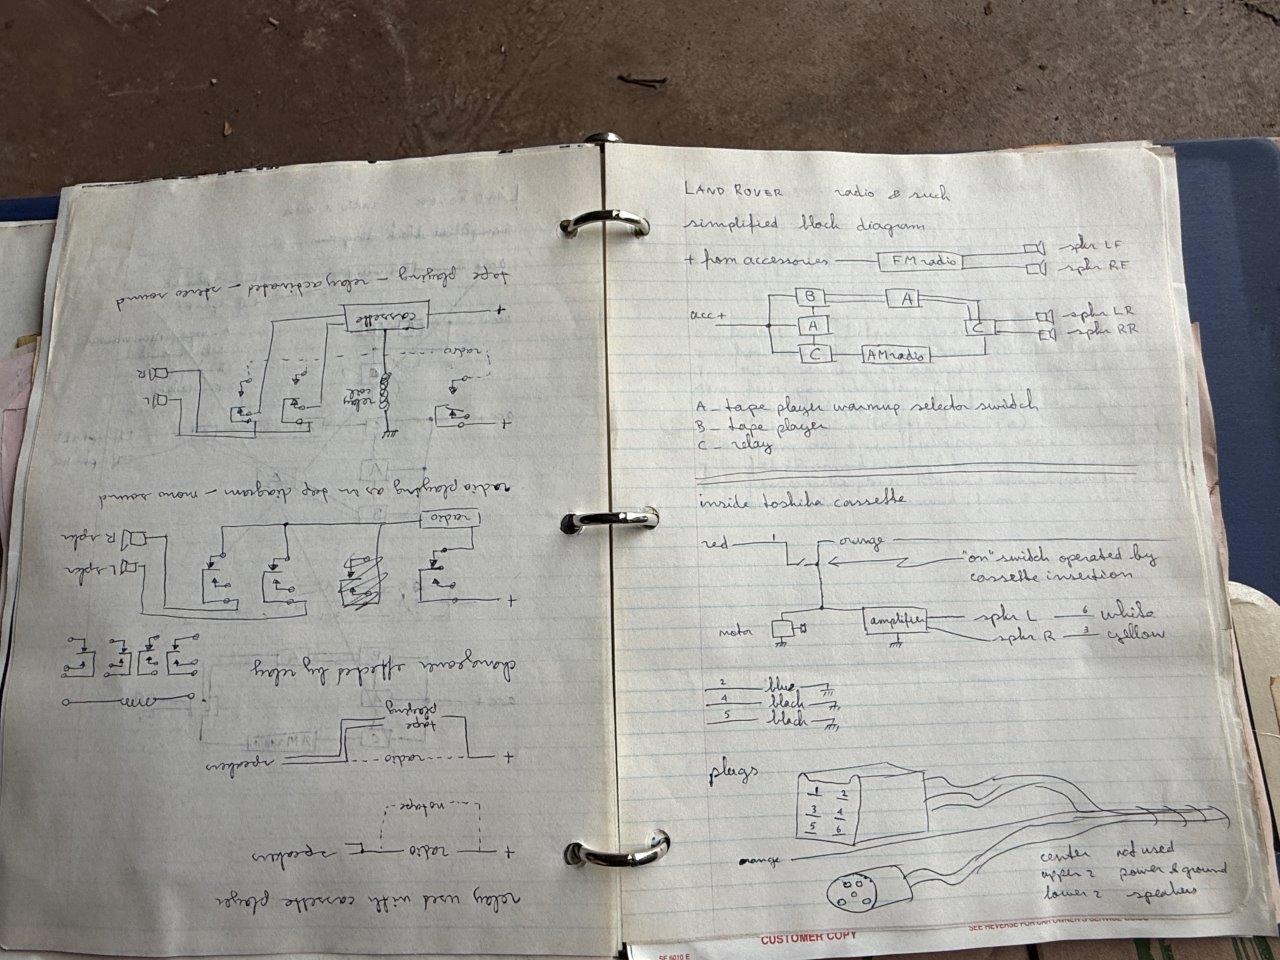 LAND ROVER radio & such
simplified block diagram
+ from accessories FM radio spkr LF
spkr RF
acc+ B A
A C spkr LR
spkr RR
C AM radio
A - tape player warmup selector switch
B - tape player
C - relay
inside toshiba cassette
red 1 orange
"on" switch operated by
cassette insertion
motor amplifier spkr L 6 white
spkr R 3 yellow
2 blue
4 black
5 black
plugs
1 2
3 4
5 6
orange
center not used
upper 2 power & ground
lower 2 speakers
CUSTOMER COPY
SF 6010 E
relay used with cassette player
+ radio speakers
no tape
+ radio speakers
tape
playing
changeover effected by relay
+ radio L spkr
R spkr
radio playing as in top diagram - mono sound
+ L
relay
coil
R
radio
+ cassette
tape playing - relay activated - stereo sound